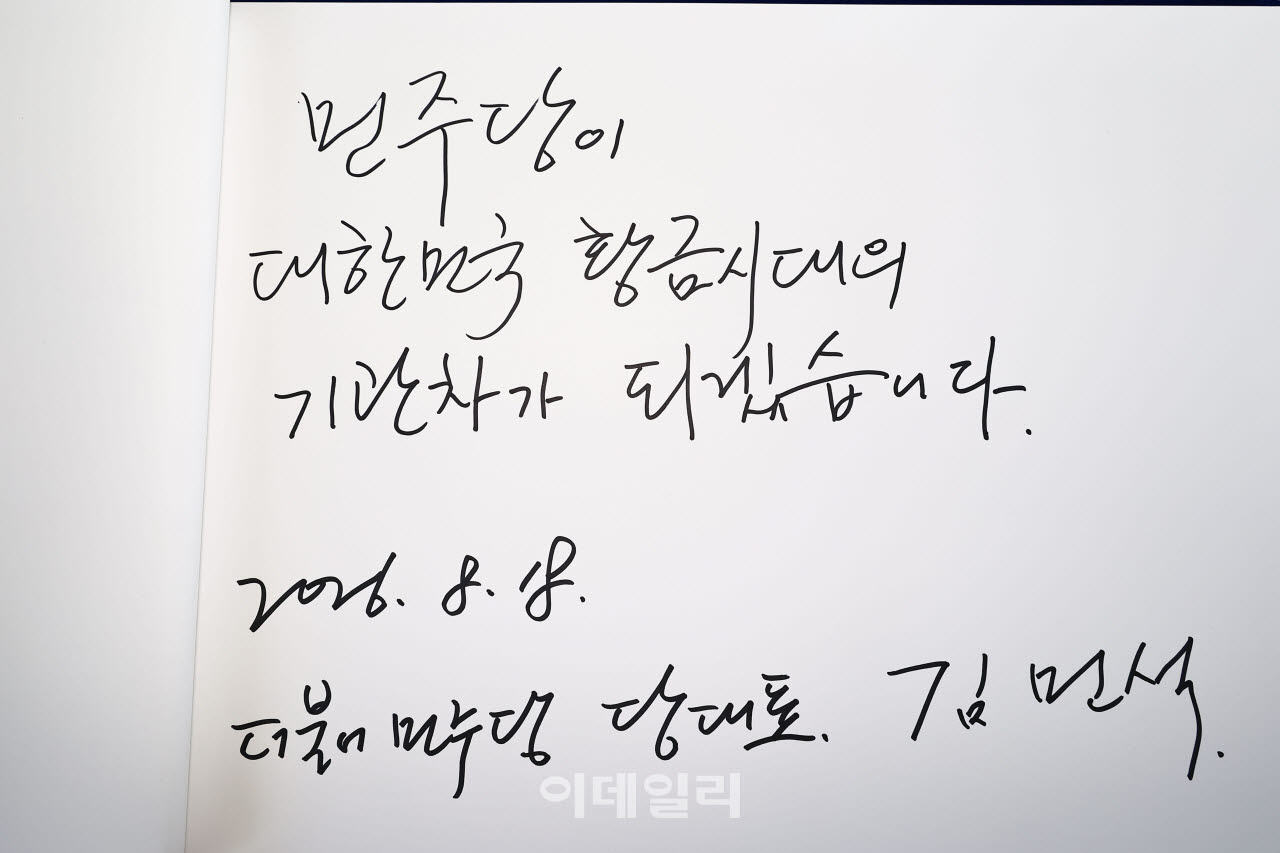 민주당이
대한민국 황금시대의
기관차가 되겠습니다.
2026. 8. 18.
더불어민주당 당대표. 김민석.
이데일리